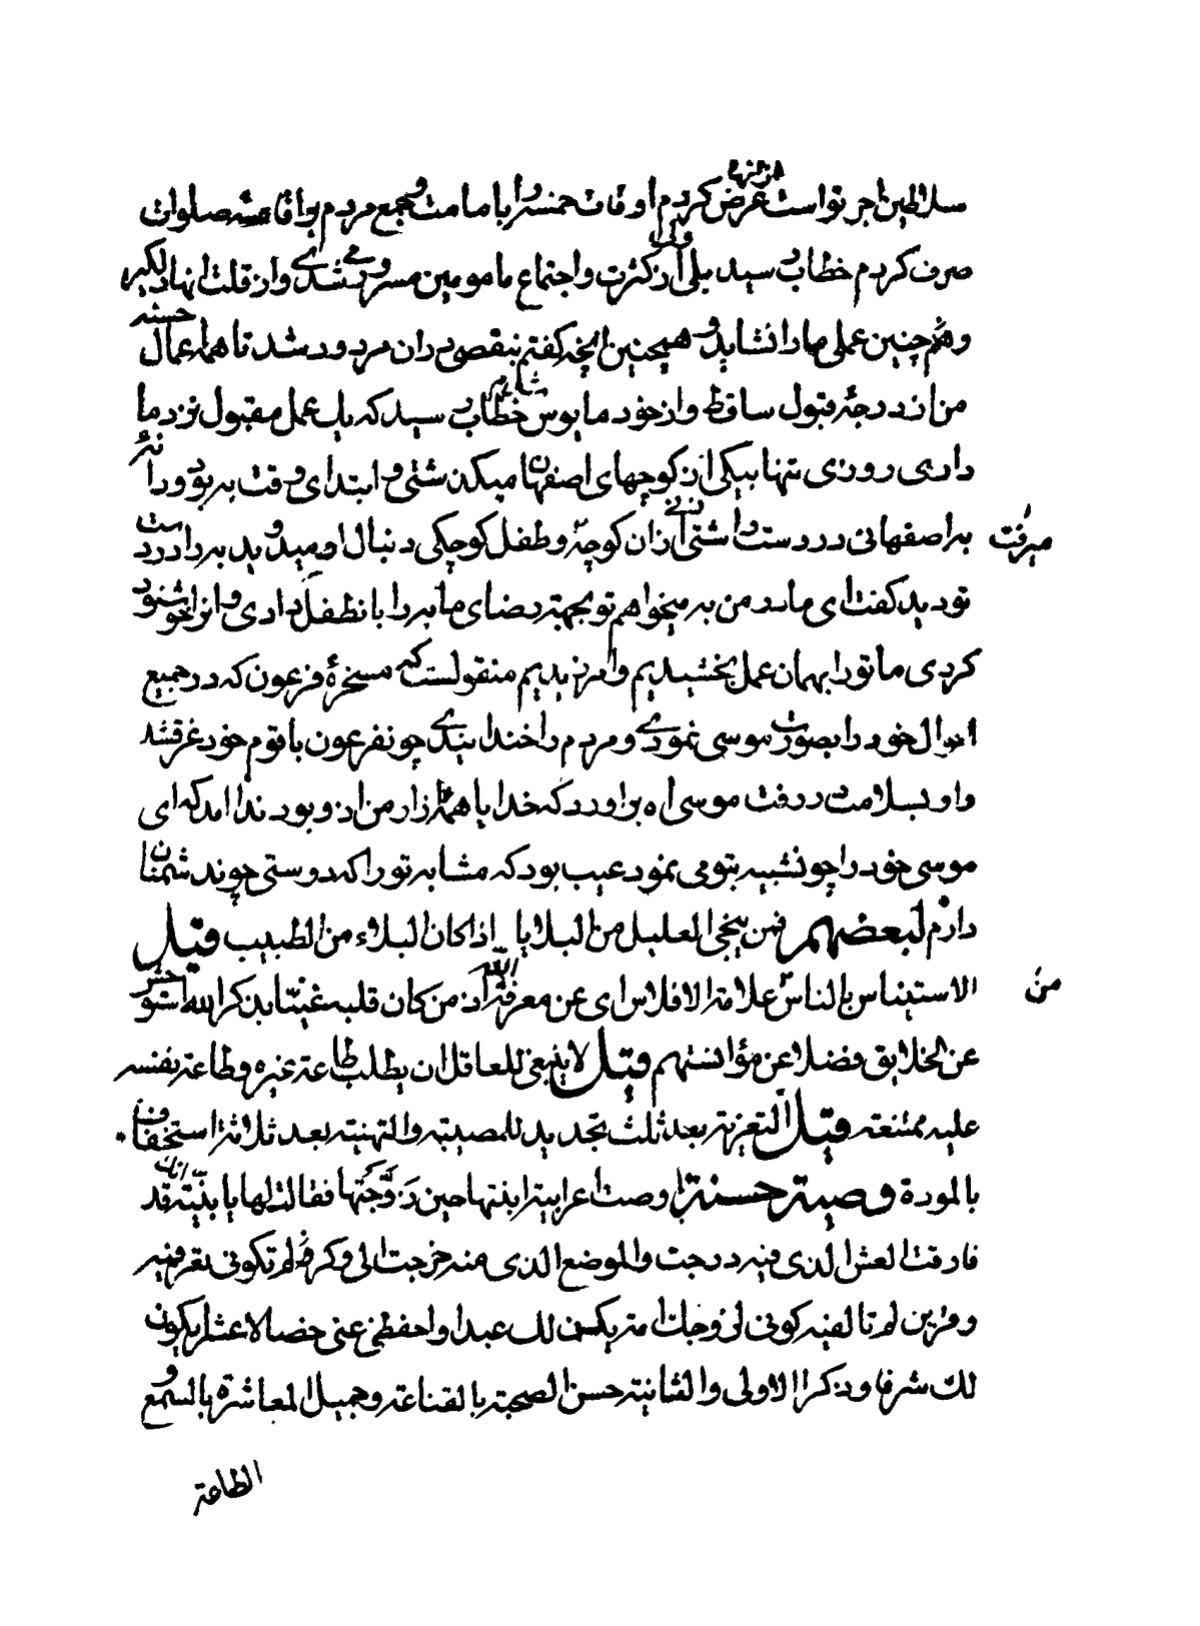 سلاطین اجر تو است عرض کردم از اینها اوقات خمسه را بامامت و جمع مردم بواقامه صلوات
صرف کردم خطاب رسید بلی از کثرت و اجتماع مامومین مسرور می شدی و از قلت انها دلگیر
و همچنین عملی ما را نشاید و همچنین انچه گفتم بنقصی دران مردود شد تا همه اعمال حسنه
من از درجهٔ قبول ساقط و از خود مایوس شدم خطاب رسید که یک عمل مقبول نزد ما
داری روزی تنها بیکی از کوچهای اصفهان میگذشتی و ابتدای وقت به بود و دانهٔ
به اصفهانی در دست داشتی زنی ازان کوچه و طفل کوچکی دنبال او میدوید به را در دست
میرفت
تو دید گفت ای مادر من به میخواهم تو بجهت رضای ما به را بانطفل دادی و انرا خوشنود
کردی ما تو را بهمان عمل بخشیدیم و امرزیدیم منقولست که مسخرهٔ فرعون که در جمیع
احوال خود را بصورت موسی نمودی و مردم را خندانیدی چون فرعون با قوم خود غرق شد
و او بسلامت در رفت موسی اه براورد که خدایا همه ازار من ازو بود ندا امد که ای
موسی خود را چون شبیه بتو می نمود عیب بود که مشابه تو را که دوستی چون دشمنان
دارم لبعضهم فمن ینجی العلیل من البلایا اذا کان البلاء من الطبیب قیل
الاستیناس بالناس علامة الافلاس ای عن معرفة الله اذ من کان قلبه غنیا بذکر الله استوحش
من
عن الخلایق فضلا عن مؤانستهم قیل لا ینبغی للعاقل ان یطلب طاعة غیره و طاعة نفسه
علیه ممتنعة قیل التعزیة بعد ثلث تجدید للمصیبة و التهنیة بعد ثلاثة استخفاف
بالمودة وصیة حسنة اوصت اعرابیة ابنتها حین زوجتها فقالت لها یا بنیة انک قد
فارقت العش الذی فیه درجت و الموضع الذی منه خرجت الی وکر لم تکونی تعرفیه
و قرین لم تالفیه کونی لزوجک امة یکن لک عبدا و احفظی عنی خصالا عشرا یکون
لک شرفا و ذکرا الاولی و الثانیة حسن الصحبة بالقناعة و جمیل المعاشرة بالسمع و
الطاعة